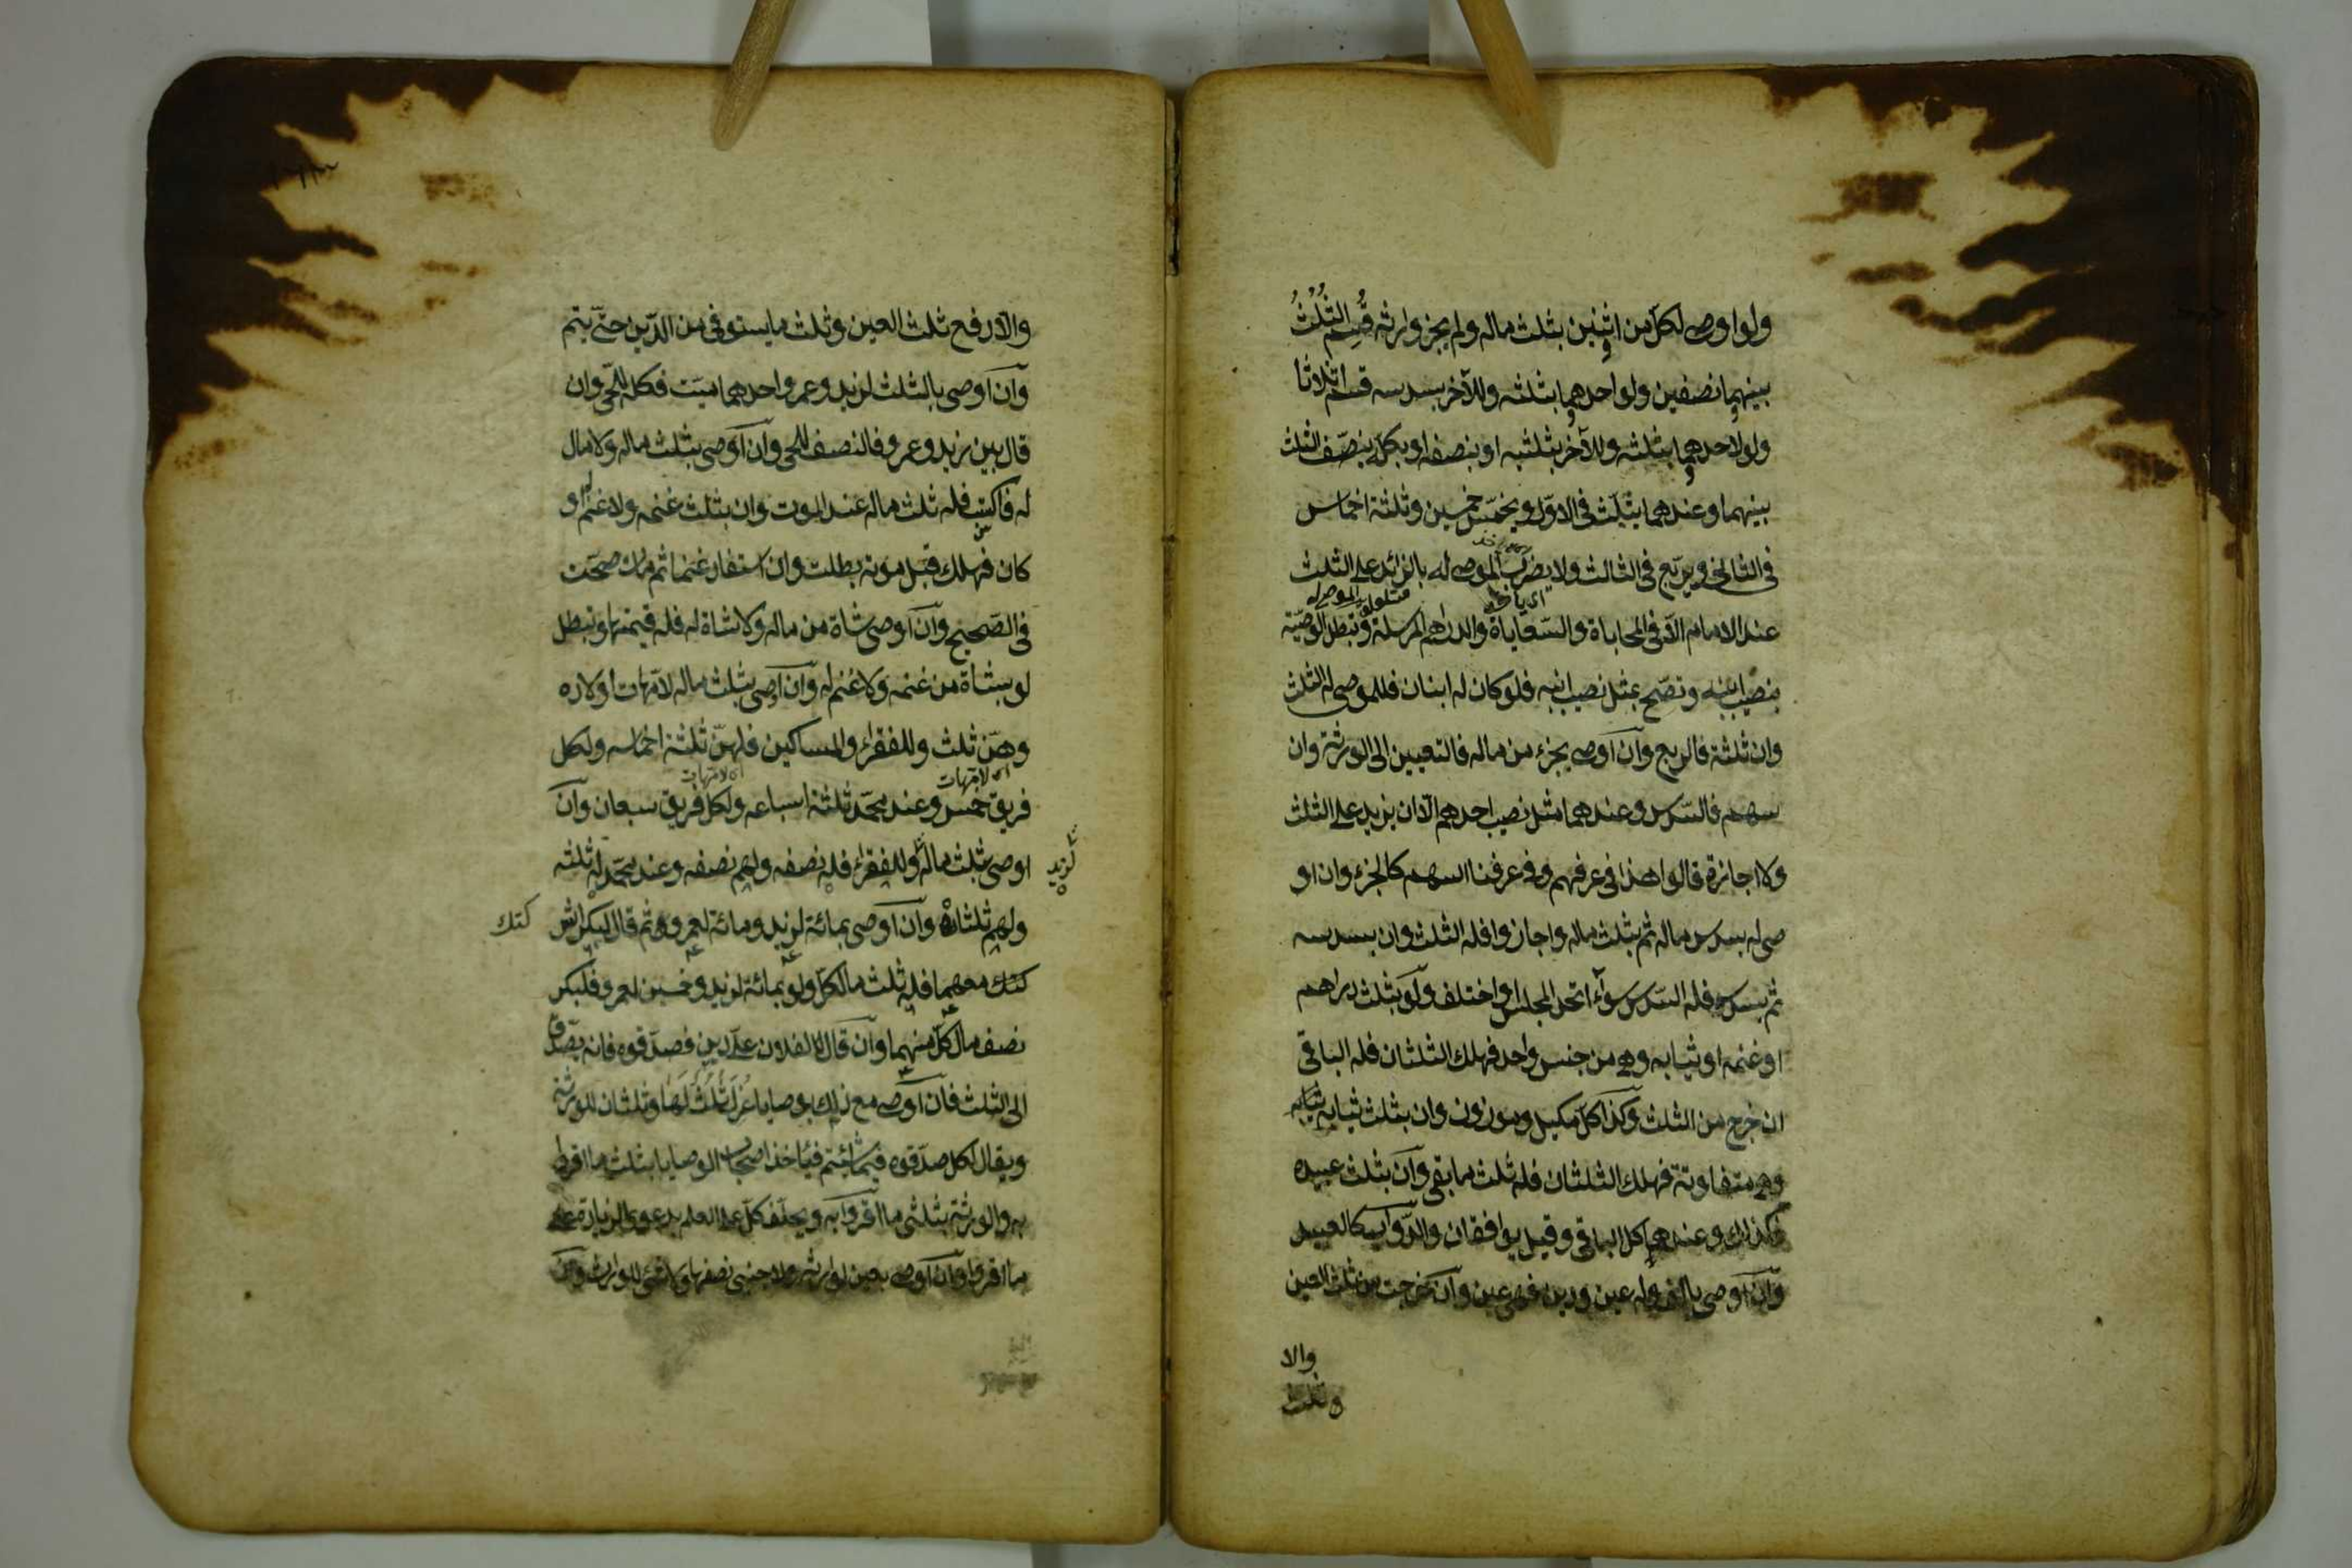 ولو اوصى لكل من اثنين بثلث ماله ولم يجز وارثه قُسِم الثُلُثُ
بينهما نصفين ولو لاحدهما بثلثه وللآخر بسدسه قسم اثلاثا
ولو لاحدهما بثلثه وللآخر بثلثيه او بنصفه او بكله ينصّف الثلث
بينهما وعندهما يثلّث فى الاوّل ويخمّس خمسين وثلثة اخماس
فى الثانى ويربّع فى الثالث ولا يضرب الموصى له بالزائد على الثلث
عند الامام الّا فى المحاباة والسّعاياة والدراهم المرسلة وتبطل الوصيّة
بنصيب ابنه وتصحّ بمثل نصيب ابنه فلو كان له ابنان فللموصى له الثلث
وان ثلثة فالربع وان اوصى بجزء من ماله فالتعيين الى الورثة وان
سهم فالسّدس وعندهما مثل نصيب احدهم الّا ان يزيد على الثلث
ولا اجازة قالوا هذا فى عرفهم وفى عرفنا السهم كالجزء وان او
صى له بسدس ماله ثم بثلث ماله واجازوا فله الثلث وان بسدسه
ثم بسدسه فله السّدس سواء اتحد المجلس او اختلف ولو بثلث دراهم
او غنمه او ثيابه وهى من جنس واحد فهلك الثلثان فله الباقى
ان خرج من الثلث وكذا كل مكيل وموزون وان بثلث ثيابه
وهى متفاوتة فهلك الثلثان فله ثلث ما بقى وان بثلث عبيده
فكذلك وعندهما كل الباقى وقيل يوافقان والدّواب كالعبيد
وان اوصى بالف وله عين ودين فهى عين وان خرجت من ثلث العين
والا
والّا دفع ثلث العين وثلث ما يستوفى من الدّين حتّى يتم
وان اوصى بالثلث لزيد وعمرو احدهما ميّت فكله للحّى وان
قال بين زيد وعمرو فالنصف للحى وان اوصى بثلث ماله ولا مال
له فاكتسب فله ثلث ماله عند الموت وان بثلث غنمه ولا غنم له او
كان فهلك قبل موته بطلت وان استفاد غنما ثم مات صحّت
فى الصّحيح وان اوصى بشاة من ماله ولا شاة له فله قيمتها وتبطل
لو بشاة من غنمه ولا غنم له وان اوصى بثلث ماله لامّهات اولاده
وهنّ ثلث وللفقراء والمساكين فلهنّ ثلثة اخماسه ولكل
فريق خمس وعند محمّد ثلثة اسباعه ولكل فريق سبعان وان
اوصى بثلث ماله وللفقراء فله نصفه ولهم نصفه وعند محمّد له ثلثه
لزيد
ولهم ثلثاه وان اوصى بمائة لزيد ومائة لعمرو ثم قال لبكر اش
كتك
كتك معهما فله ثلث ما لكلّ ولو بمائة لزيد وخمسين لعمرو فلبكر
نصف مال كلّ منهما وان قال لفلان علىّ دين فصدّقوه فانه يصدّق
الى الثلث فان اوصى مع ذلك بوصايا عُزِلَ ثُلُثٌ لَها وثلثان للورثة
ويقال لكل صدّقوه فيما شئتم فياخذ اصحاب الوصايا بثلث ما اقروا
به والورثة بثلثى ما اقروا به ويحلّف كلّ على العلم بدعوى الزيادة على
ما اقروا وان اوصى بعين لوارثه ولاجنبى نصفها ولا شئ للوارث وان